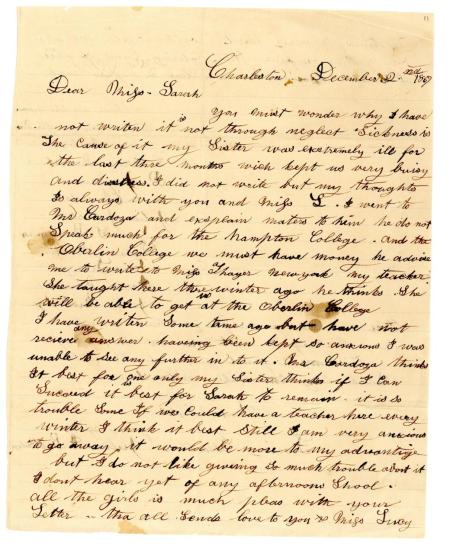 11
Charleston December 2nd 1867
Dear Miss Sarah
You must wonder why I have
not writen it is not through neglect Sickness is
the cause of it my Sister was extremely ill for
the last three months wich kept us very buisy
and distress. I did not write but my thoughts
is always with you and Miss L. I went to
Mr Cardoza and explain maters to him he do not
Speak much for the Hampton College. and the
Oberlin College we must have money he advise
me to write to Miss Thayer New york my teacher
She taught here three winter ago he thinks She
will be able to get us at the Oberlin College
I have writen Some time ago but have not
recieve any answer. having been kept so anxious I was
unable to See any further in to it. Mr Cardoza thinks
it best for one only my Sister thinks if I Can
Succeed it is best for Sarah to remain. it is so
trouble Some if we Could have a teacher here every
winter I think it best Still I am very anxious
to go away. it would be more to my advantage
but I do not like giveing So much trouble about it
I dont hear yet of any afternoons Shool.
all the girls is much pleas with your
Letter tha all Sends love to you & Miss Lucy